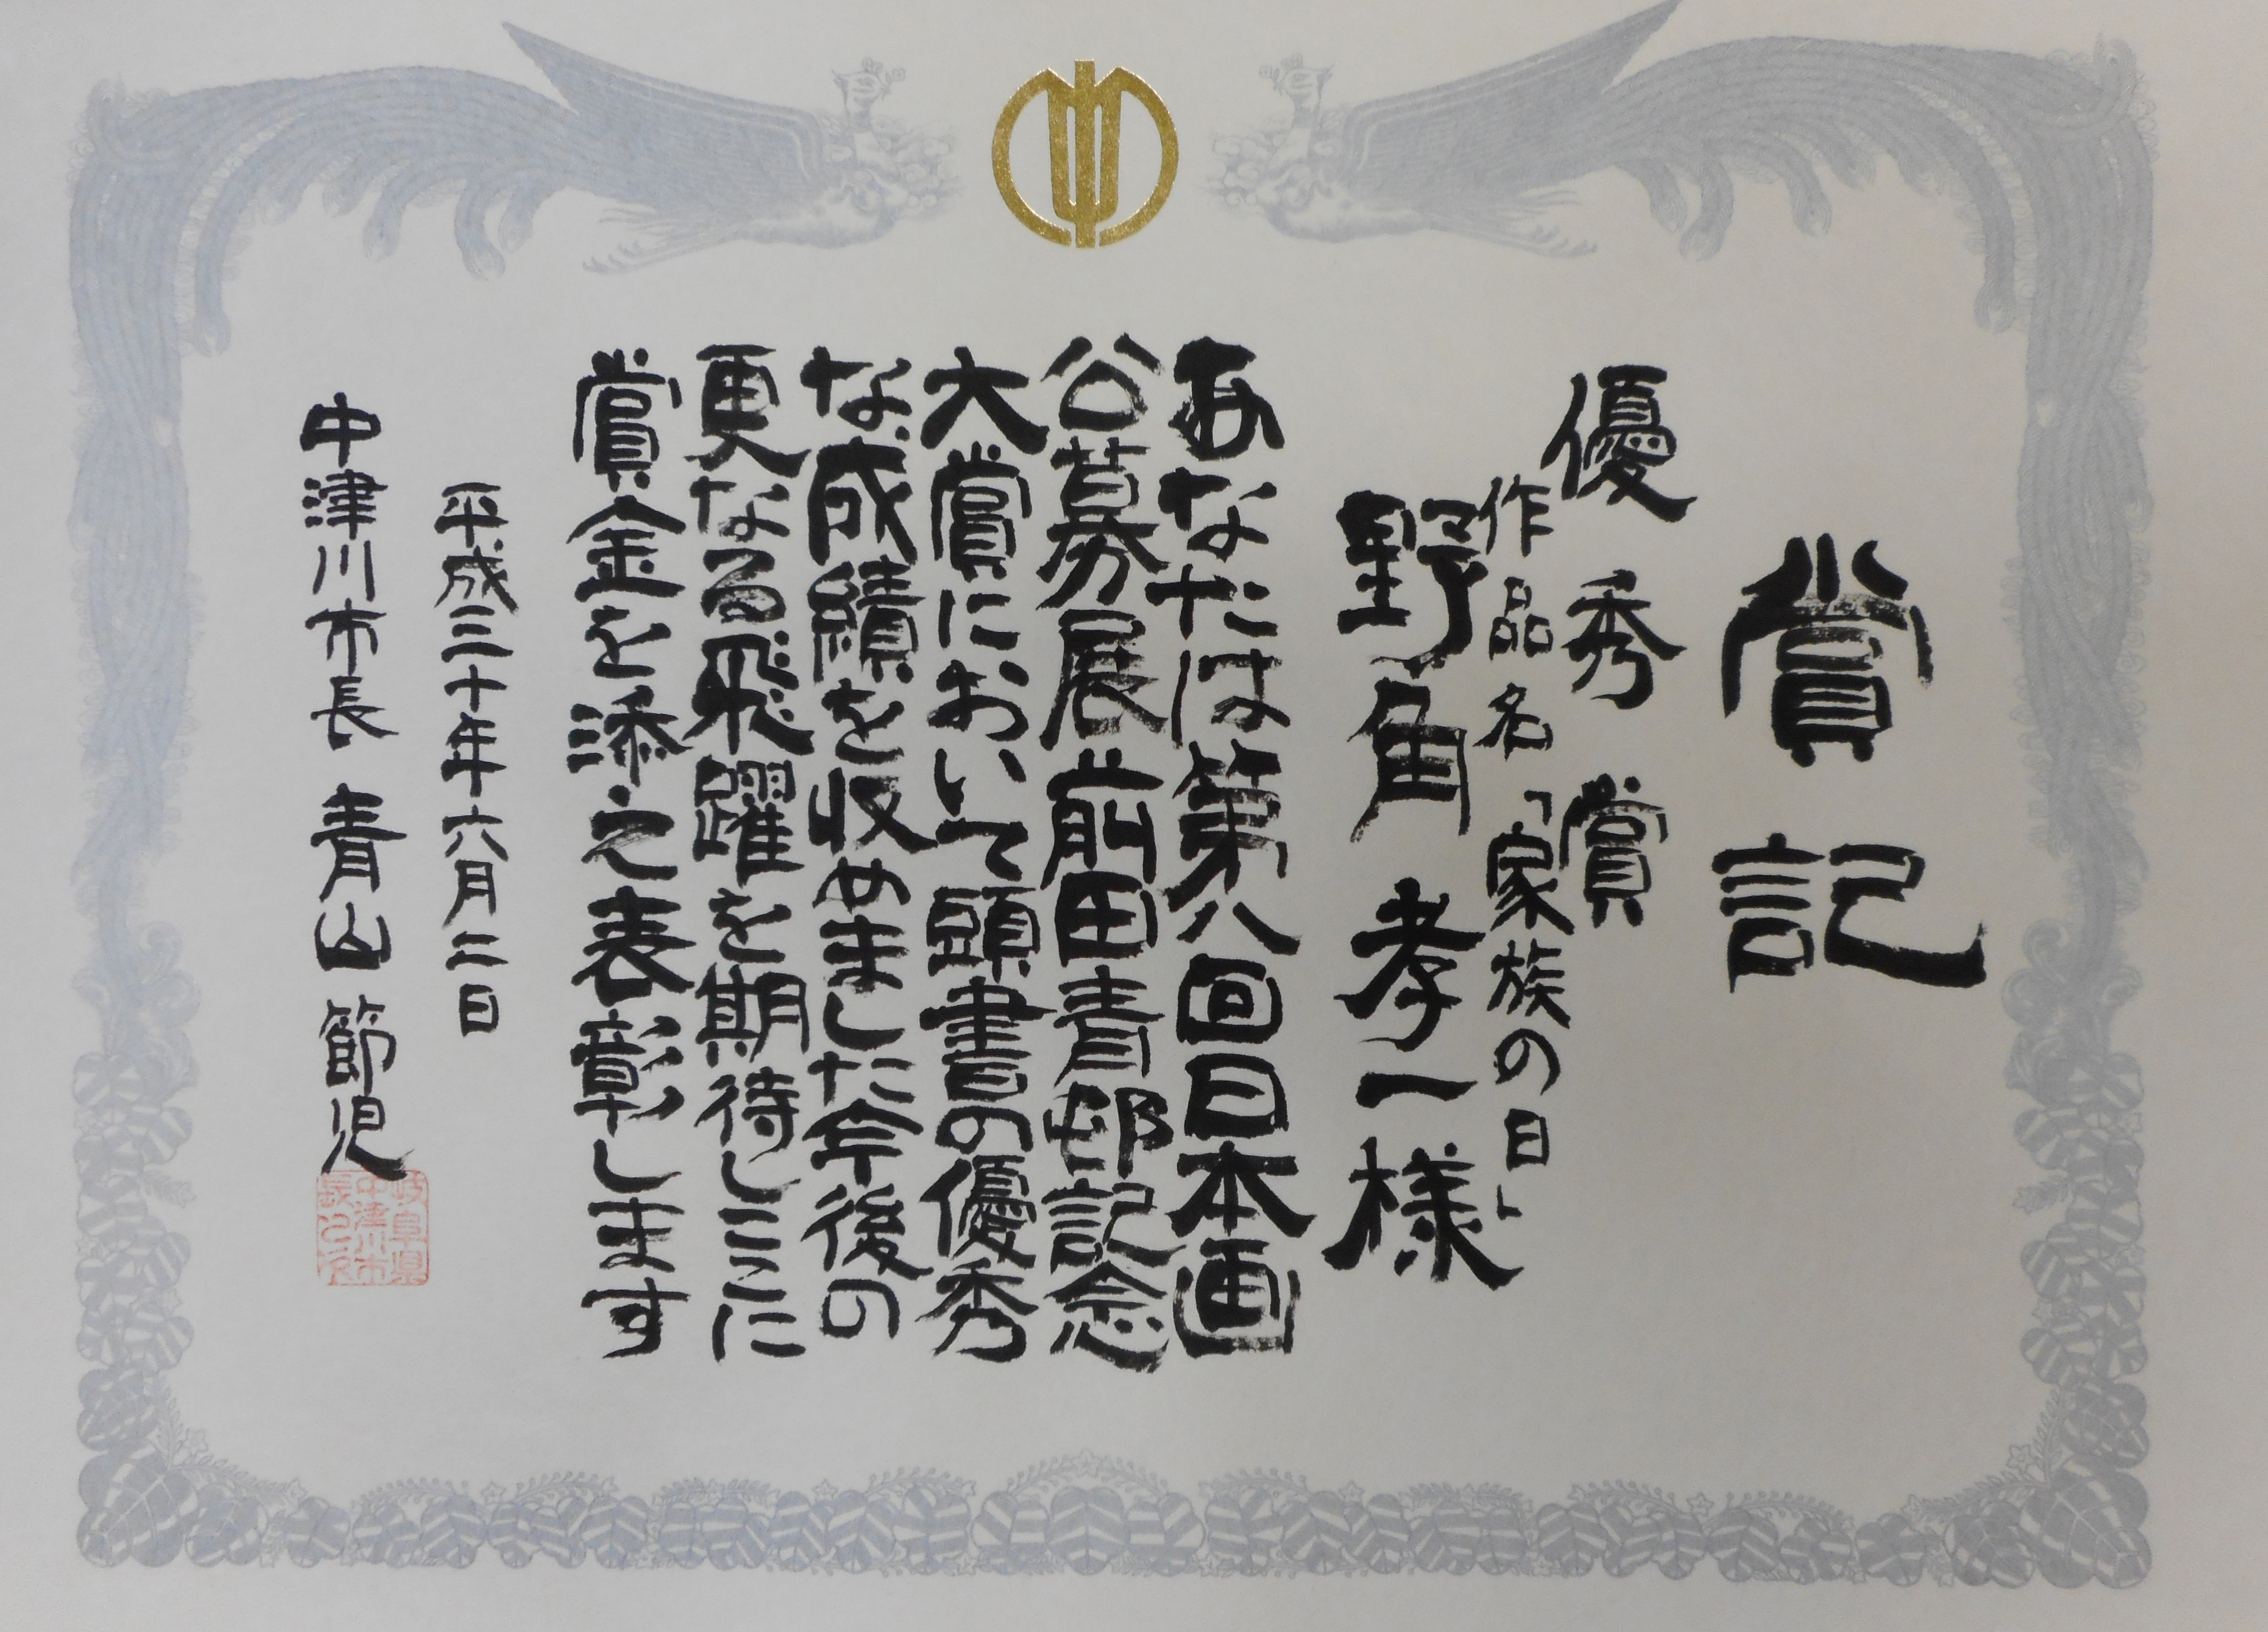 賞記
優秀賞
作品名「家族の日」
野角孝一様
あなたは第八回日本画
公募展前田青邨記念
大賞において頭書の優秀
な成績を収めました今後の
更なる飛躍を期待しここに
賞金を添え表彰します
平成三十年六月二日
中津川市長 青山節児
岐阜県
中津川市
長之印